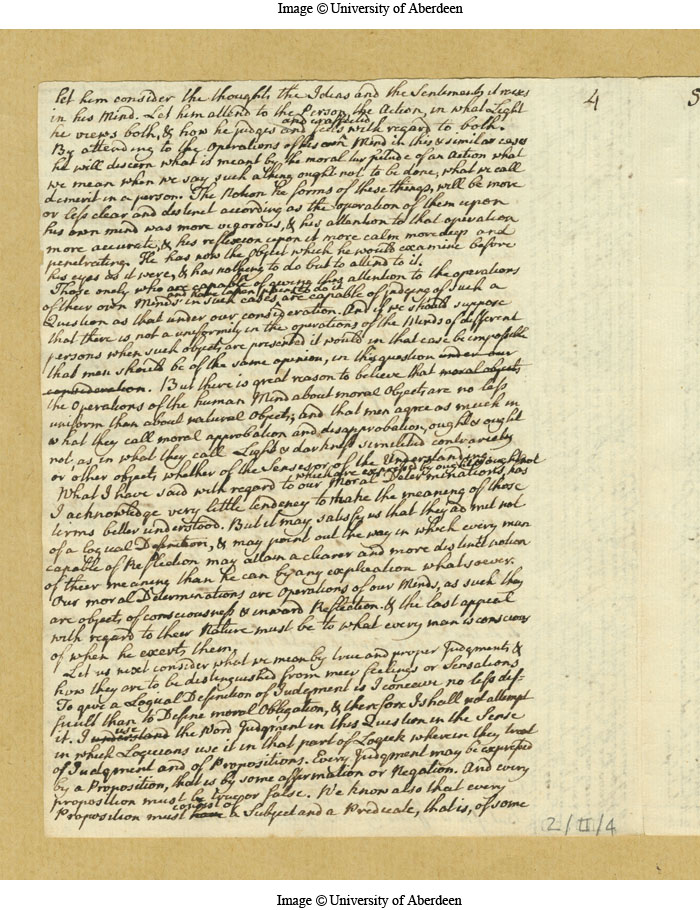 Image © University of Aberdeen
4
5
let him consider the thoughts the Ideas and the Sentiments it raises
in his Mind. Let him attend to the Person, the Action, in what Light
he views both, & how he judges and is affected and feels with regard to both.
By attending to the Operations of his own Mind in this & similar cases
he will discern what is meant by the moral turpitude of an Action what
we mean when we say such a thing ought not to be done, what we call
demerit in a person. The Notion he forms of these things, will be more
or less clear and distinct according as the operation of them upon
his own mind was more vigorous, & his attention to that operation
more accurate, & his reflexion upon it more calm more deep and
penetrating. He has now the Object which he would examine before
his eyes as it were, & has nothing to do but to attend to it.
Those onely who are capable of giving this attention to the operations
of their own Minds and have taken pains to do it in such cases, are capable of judging of such a
Question as that under our consideration. And if we should suppose
that there is not a uniformity in the operations of the Minds of different
persons when such objects are presented it would in that case be impossible
that men should be of the same opinion, in this question under our
consideration. But there is great reason to believe that moral objects
the Operations of the human Mind about moral Objects are no less
uniform than about natural Objects; and that men agree as much in
what they call moral approbation and disapprobation, ought & ought
not, as in what they call Light & darkness similitud contrariety
or other objects whether of the Senses or of the Understanding.
What I have said with regard to our Moral Determinations, which are expressed by ought & ought not has
I acknowledge very little tendency to make the meaning of those
terms better understood. But it may satisfy us that they do not
of a Logical Definition, & may point out the way in which every man
capable of Reflection may attain a clearer and more distinct notion
of their meaning than he can by any explication whatsoever.
Our moral Determinations are Operations of our Minds, as such they
are objects of consciousness & inward Reflection. & the last appeal
with regard to their Nature must be to what every man is conscious
of when he exerts them.
Let us next consider what we mean by true and proper Judgment, &
how they are to be distinguished from meer feelings or Sensations
To give a Logical Definition of Judgment is I conceive no less dif=
ficult than to Define moral Obligation, & therefore I shall not attempt
it. I understand use the Word Judgment in this Question in the Sense
in which Logicians use it in that part of Logick wherein they treat
of Judgment and of Propositions. Every Judgment may be expressed
by a Proposition, that is by some affirmation or Negation. And every
proposition must be true or false. We know also that every
Proposition must have consist of a Subject and a Predicate, that is, of some
2/II/4
Image © University of Aberdeen